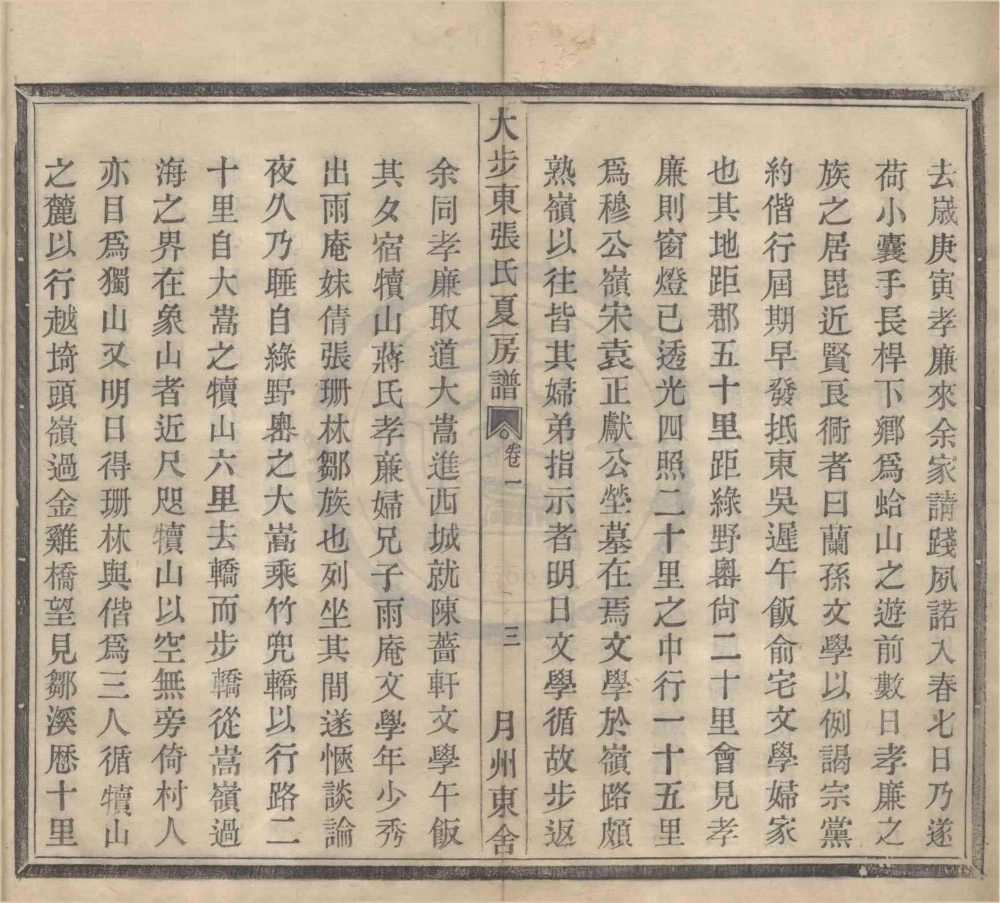 去歲庚寅孝廉來余家請踐夙諾入春七日乃遂
荷小囊手長桿下鄉爲蛤山之遊前數日孝廉之
族之居毘近賢良衕者曰蘭孫文學以例謁宗黨
約偕行屆期早發抵東吳遲午飯俞宅文學婦家
也其地距郡五十里距綠野嶴尙二十里會見孝
廉則窗燈已透光四照二十里之中行一十五里
爲穆公嶺宋袁正獻公塋墓在焉文學於嶺路頗
熟嶺以往皆其婦弟指示者明日文學循故步返
大步東張氏夏房譜 卷一 三 月州東舍
余同孝廉取道大嵩進西城就陳薔軒文學午飯
其夕宿犢山蔣氏孝亷婦兄子雨庵文學年少秀
出雨庵妹倩張珊林鄒族也列坐其間遂愜談論
夜久乃睡自綠野嶴之大嵩乘竹兜轎以行路二
十里自大嵩之犢山六里去轎而步轎從嵩嶺過
海之界在象山者近尺咫犢山以空無旁倚村人
亦目爲獨山又明日得珊林與偕爲三人循犢山
之麓以行越埼頭嶺過金雞橋望見鄒溪歷十里